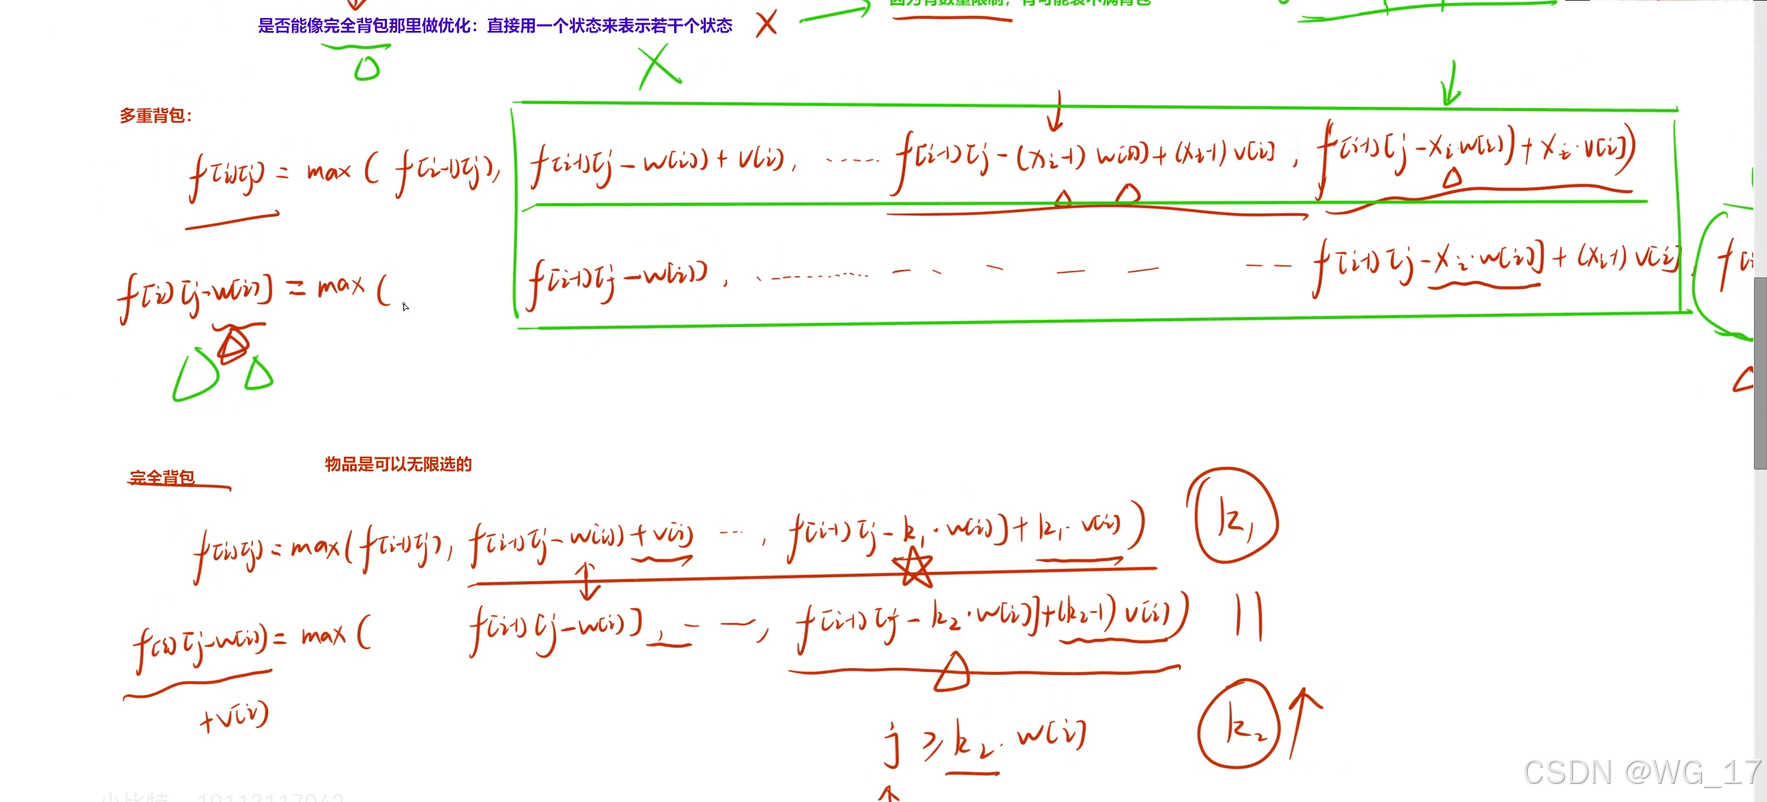 是否能像完全背包那里做优化：直接用一个状态来表示若干个状态 X
X
多重背包：
f[i][j] = max( f[i-1][j], f[i-1][j-w[i]]+v[i], ····· f[i-1][j-(xi-1)w[i]]+(xi-1)v[i], f[i-1][j-xi·w[i]]+xi·v[i])
f[i][j-w[i]] = max( f[i-1][j-w[i]], ········ f[i-1][j-xi·w[i]]+(xi-1)v[i]
完全背包 物品是可以无限选的
f[i][j]=max(f[i-1][j], f[i-1][j-w[i]]+v[i] ···, f[i-1][j-k1·w[i]]+k1·v[i]) k1
f[i][j-w[i]]= max( f[i-1][j-w[i]], - —, f[i-1][j-k2·w[i]]+(k2-1)v[i]) ||
+v[i]
j ≥ k2·w[i] k2
CSDN @WG_17